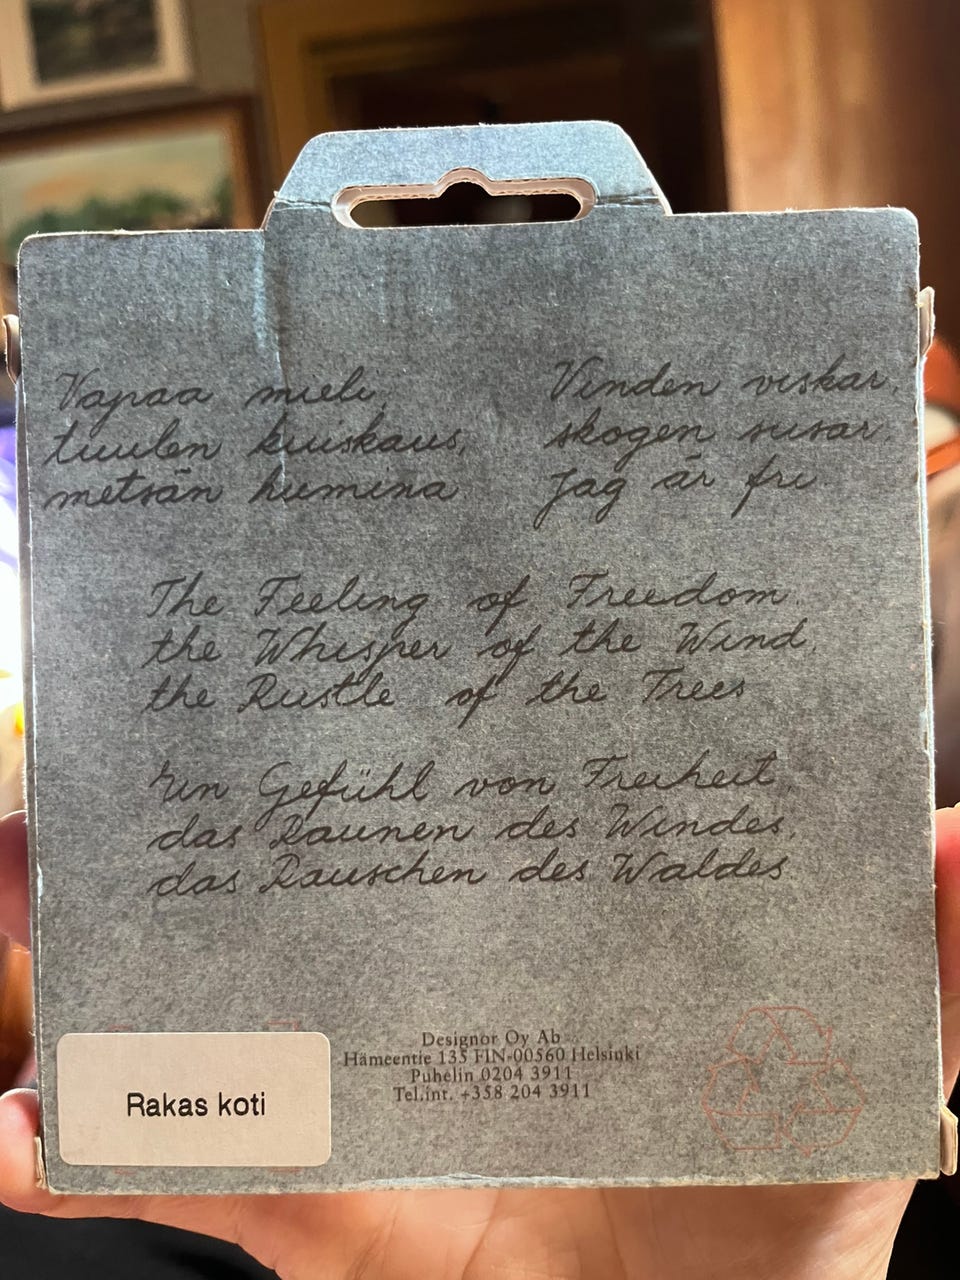 Vapaa mieli,
tuulen kuiskaus,
metsän humina
Vinden viskar,
skogen susar.
Jag är fri
The Feeling of Freedom,
the Whisper of the Wind,
the Rustle of the Trees
Ein Gefühl von Freiheit,
das Raunen des Windes,
das Rauschen des Waldes
Designor Oy Ab
Hämeentie 135 FIN-00560 Helsinki
Puhelin 0204 3911
Tel.int. +358 204 3911
Rakas koti